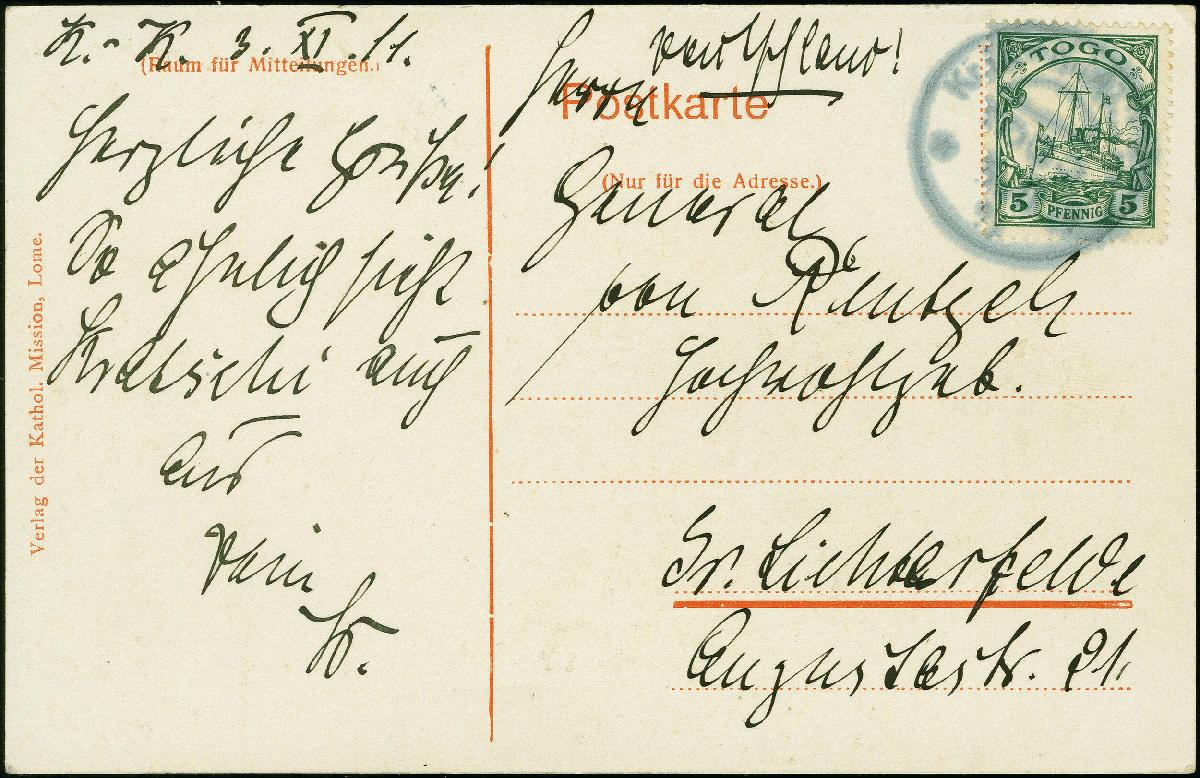 K.-K. 3. XI. 11.
(Raum für Mitteilungen.)
Herzliche Grüße!
So ähnlich sieht
Kratschi auch
aus
Dein
Verlag der Kathol. Mission, Lome.
Deutschland!
Herrn
Postkarte
(Nur für die Adresse.)
General
von Rentzell
Hochwohlgeb.
Gr. Lichterfelde
Augustastr. 21.
TOGO
5 PFENNIG 5